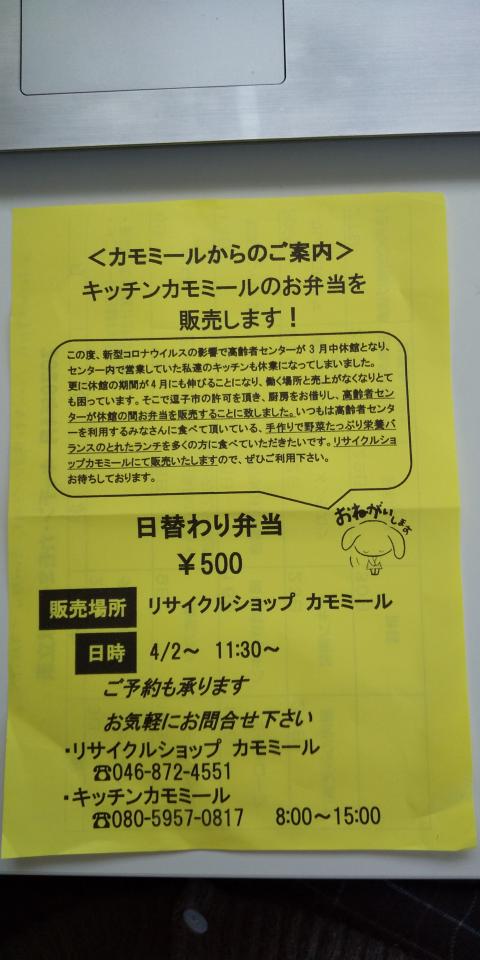 ＜カモミールからのご案内＞
キッチンカモミールのお弁当を
販売します！
この度、新型コロナウイルスの影響で高齢者センターが 3 月中休館となり、
センター内で営業していた私達のキッチンも休業になってしまいました。
更に休館の期間が 4 月にも伸びることになり、働く場所と売上がなくなりとて
も困っています。そこで逗子市の許可を頂き、厨房をお借りし、高齢者セン
ターが休館の間お弁当を販売することに致しました。いつもは高齢者センタ
ーを利用するみなさんに食べて頂いている、手作りで野菜たっぷり栄養バ
ランスのとれたランチを多くの方に食べていただきたいです。リサイクルショ
ップカモミールにて販売いたしますので、ぜひご利用下さい。
お待ちしております。
おねがいします
日替わり弁当
￥500
販売場所 リサイクルショップ カモミール
日時 4/2～ 11:30～
ご予約も承ります
お気軽にお問合せ下さい
・リサイクルショップ カモミール
☎046-872-4551
・キッチンカモミール
☎080-5957-0817 8:00～15:00